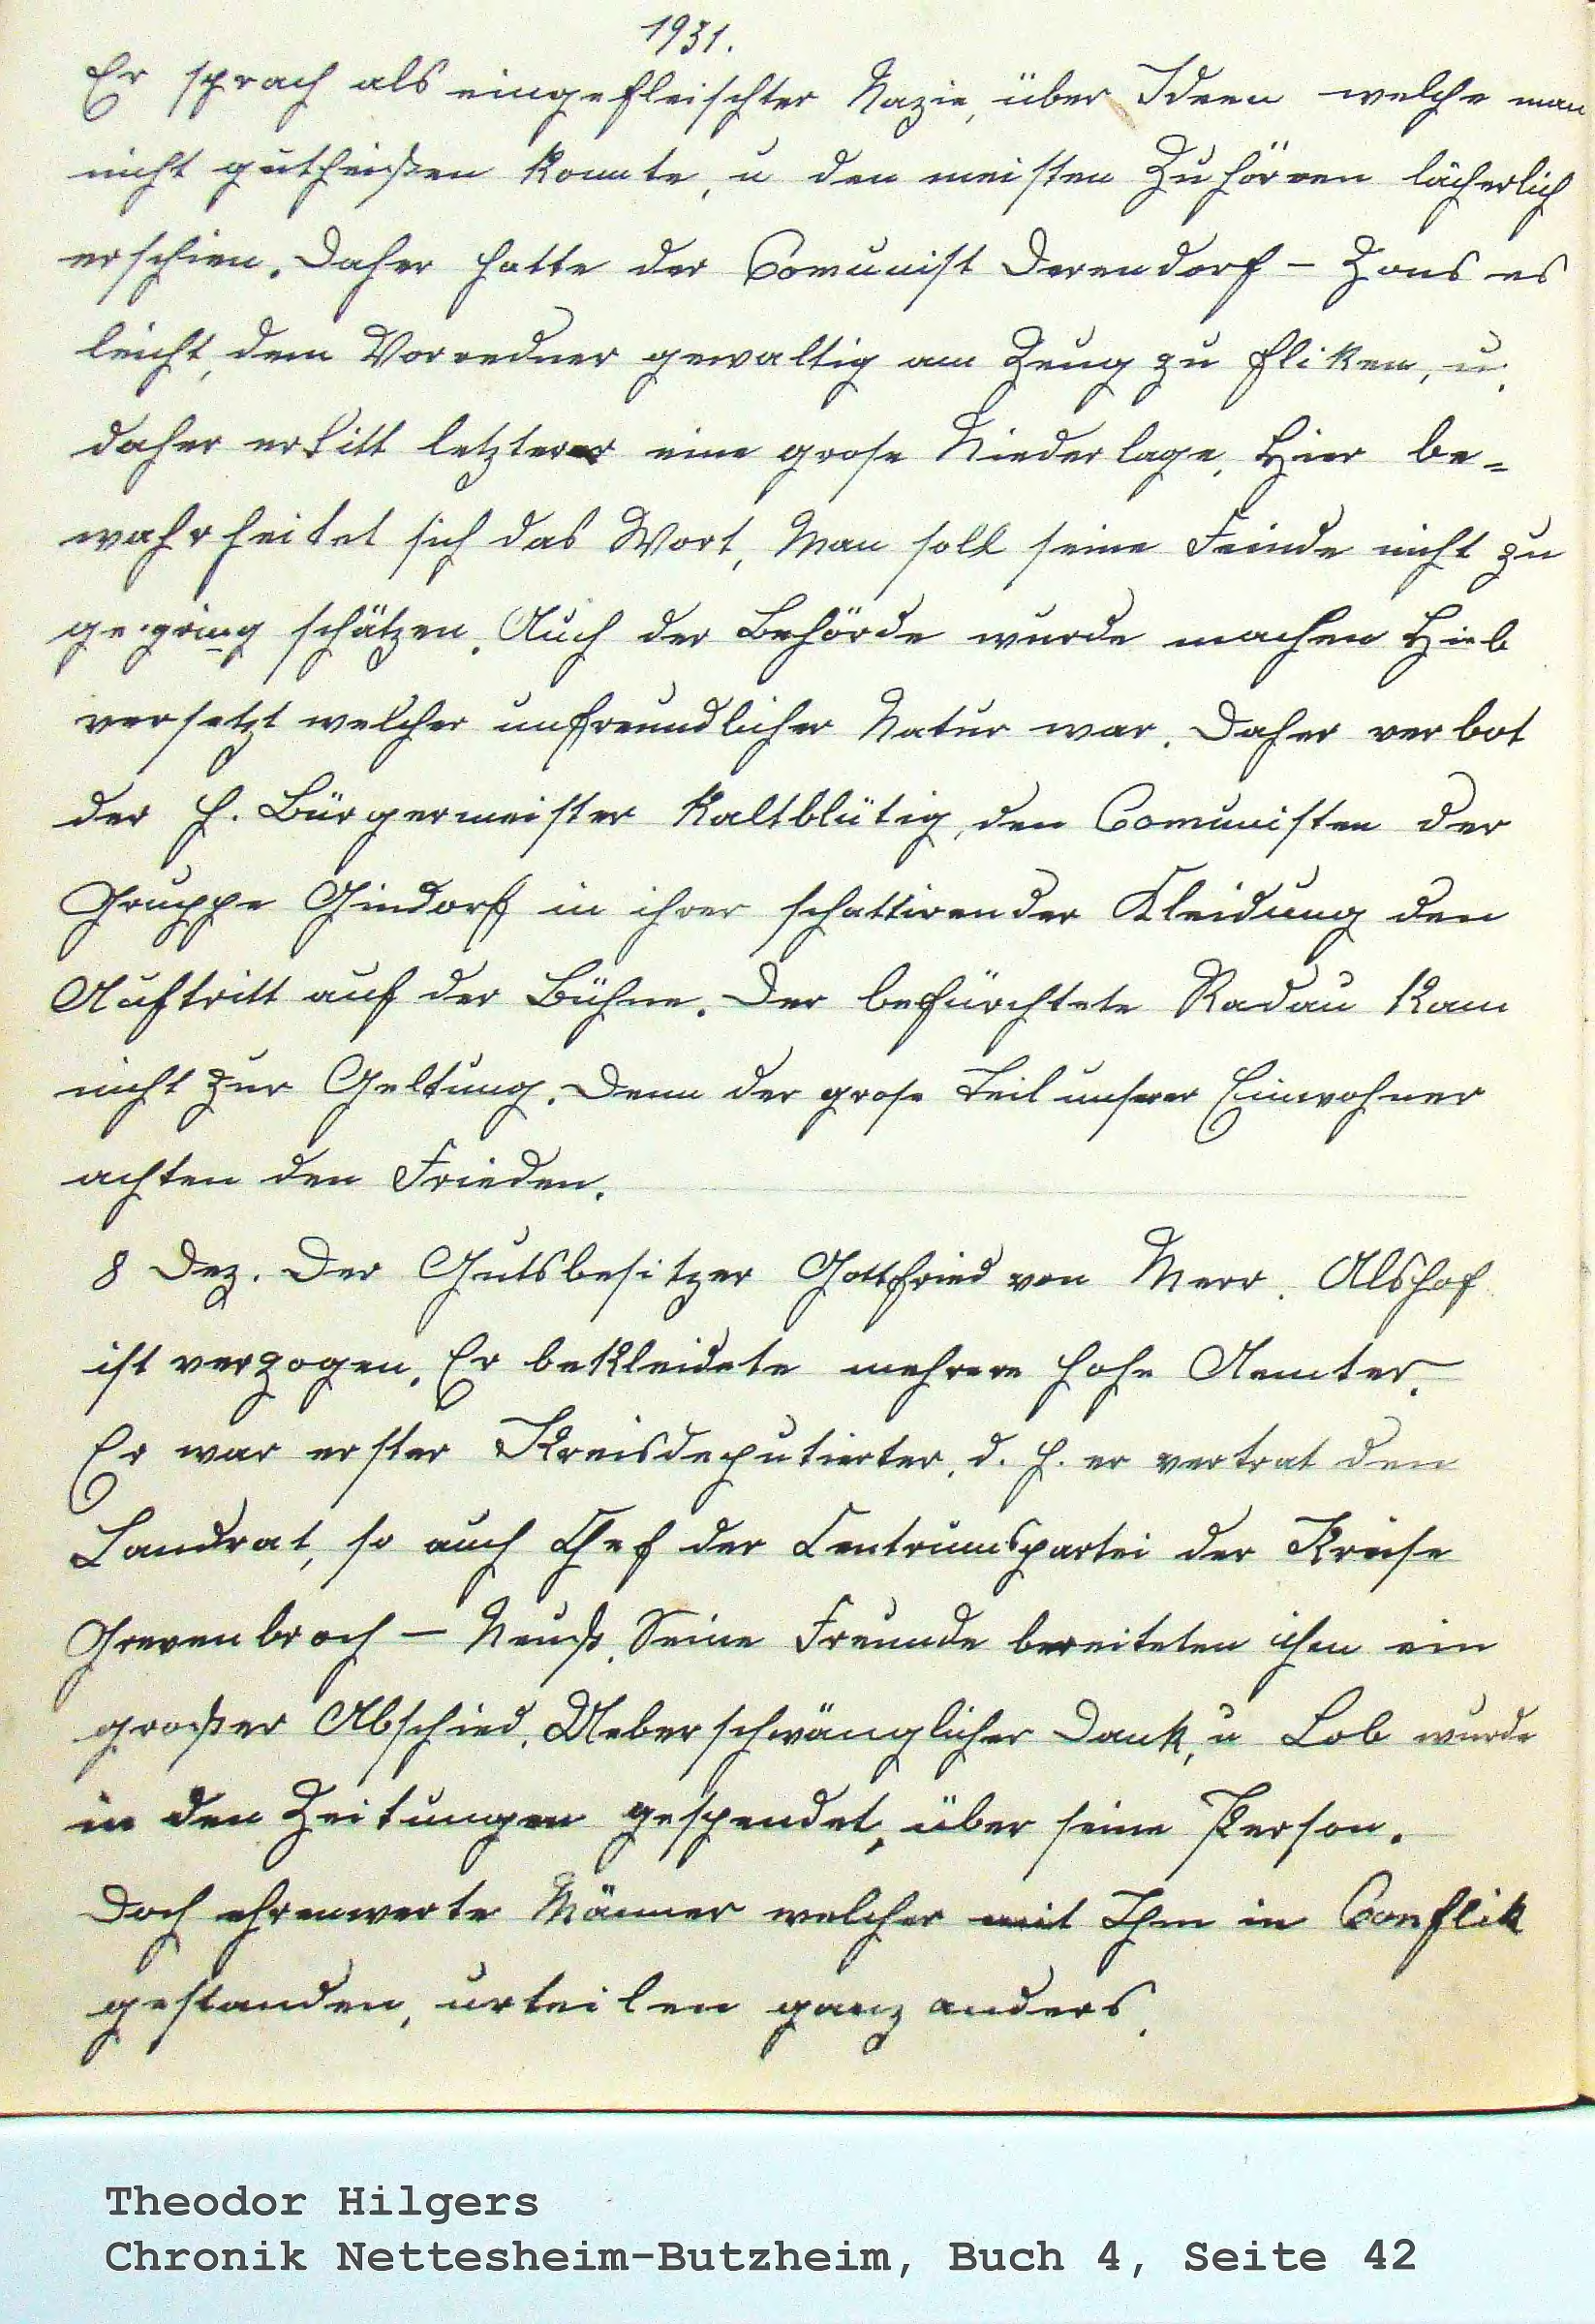 1931.
Er sprach als eingefleischter Nazie, über Ideen welche man
nicht gutheißen konnte, u den meisten Zuhören lächerlich
erschien. Daher hatte der Comunist Derendorf - Zons es
leicht, dem Vorredner gewaltig am Zeug zu fliken, u.
daher erlitt letzterer eine grose Niederlage. Hier be=
wahrheitet sich das Wort, Man soll seine Feinde nicht zu
gering schätzen. Auch der Behörde wurde machen Hieb
versetzt welcher unfreundlicher Natur war. Daher verbot
der H. Bürgermeister kaltblütig, den Comunisten der
Gruppe Gindorf in ihrer schattirender Kleidung den
Auftritt auf der Bühne. Der befürchtete Radau kam
nicht zur Geltung. Denn der grose Teil unserer Einwohner
achten den Frieden.
8 Dez. Der Gutsbesitzer Gottfried von Merr. Alshof
ist verzogen. Er bekleidete mehrere hohe Aemter.
Er war erster Kreisdeputierter, d. h. er vertrat den
Landrat, so auch Chef der Centrumspartei der Kreise
Grevenbroch - Neuß. Seine Freunde bereiteten ihm ein
großer Abschied. Ueberschwänglicher Dank, u Lob wurde
in den Zeitungen gespendet, über seine Person.
Doch ehrenwerte Männer welcher mit Ihm in Conflik
gestanden, urteilen ganz anders.
Theodor Hilgers
Chronik Nettesheim-Butzheim, Buch 4, Seite 42